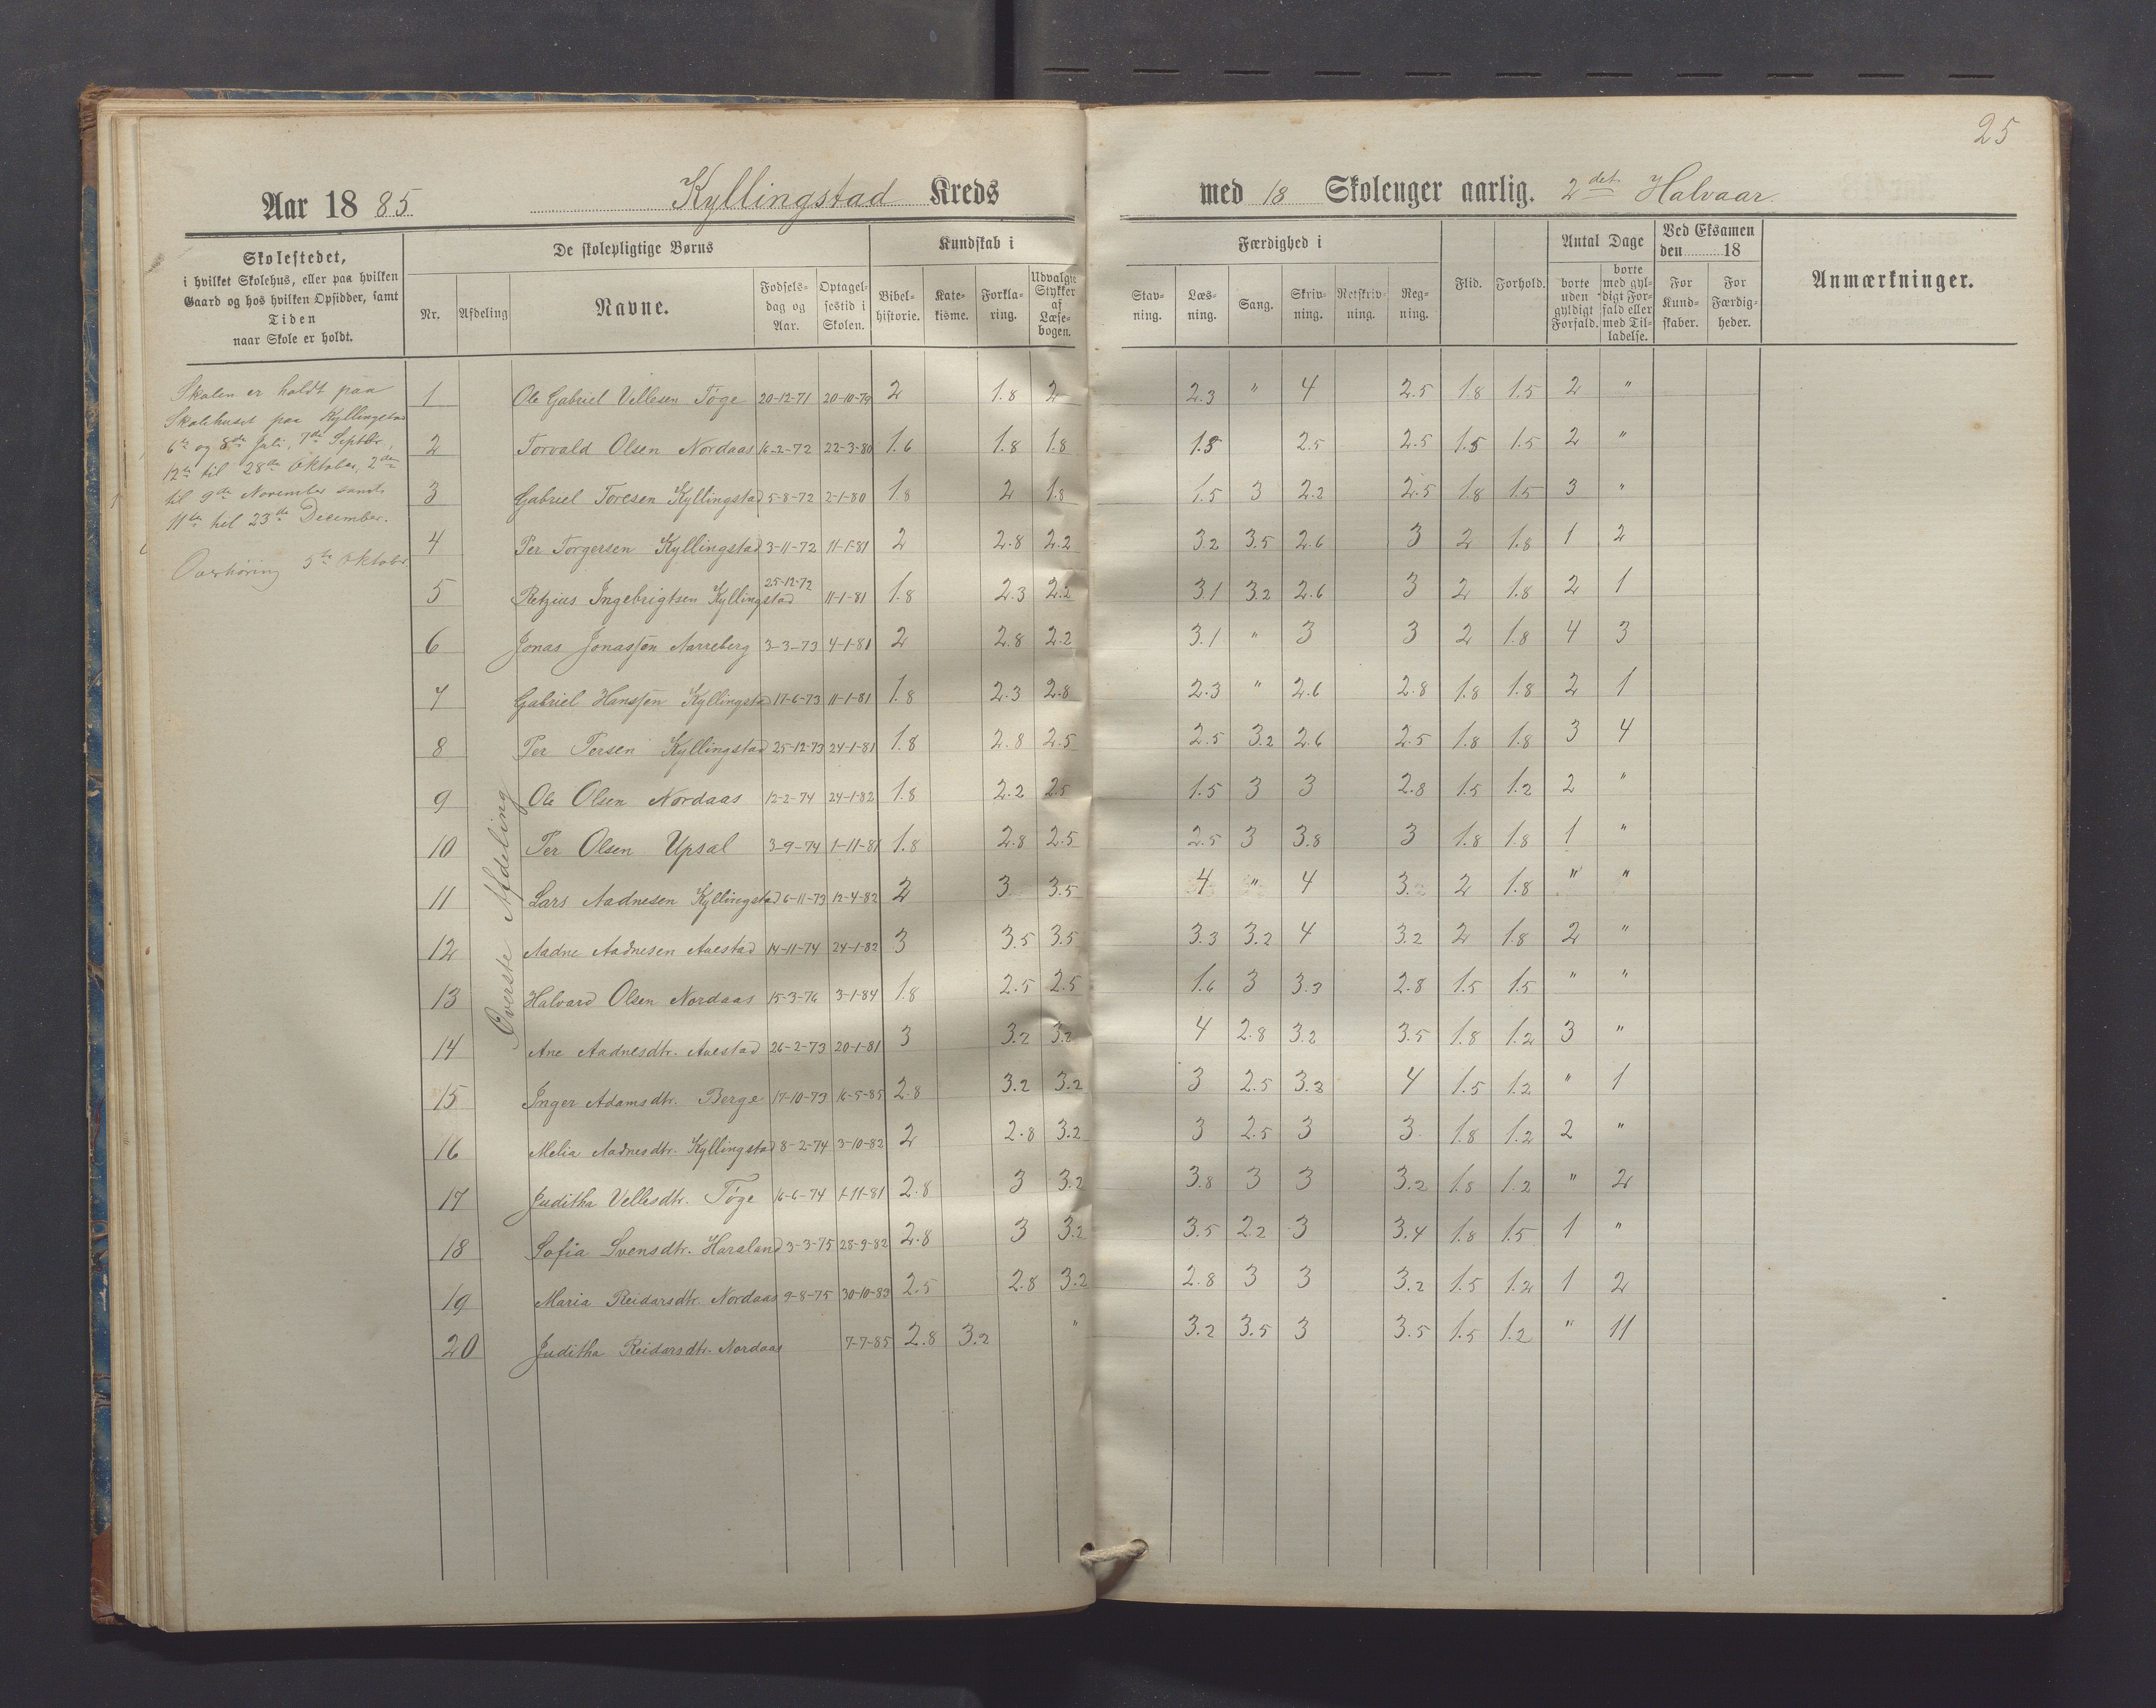 25
Aar 1885 Kyllingstad Kreds med 18 Skolenger aarlig. 2det Halvaar.
Skolestedet,
i hvilket Skolehus, eller paa hvilken
Gaard og hos hvilken Opsidder, samt
Tiden
naar Skole er holdt.
De skolepligtige Børns
Nr. Afdeling Navne. Fødselsdag og Aar. Optagelsestid i Skolen.
Kundskab i
Bibelhistorie. Katekisme. Forklaring. Udvalgte Stykker af Læsebogen.
Færdighed i
Stavning. Læsning. Sang. Skrivning. Retskrivning. Regning.
Flid. Forhold.
Antal Dage
borte uden gyldigt Forfald. borte med gyldigt Forfald eller med Tilladelse.
Ved Eksamen
den 18
For Kundskaber. For Færdigheder.
Anmærkninger.
Skolen er holdt paa
Skolehuset paa Kyllingstad
6te og 8de Juli, 7de Septbr,
12te til 28de Oktober, 2den
til 9de November samt
11te til 23de December.
Overhøring 5te Oktober
Øverste Afdeling
1 Ole Gabriel Vellesen Tøge 20-12-71 20-10-79 2 1.8 2 2.3 " 4 2.5 1.8 1.5 2 "
2 Torvald Olsen Nordaas 16-2-72 22-3-80 1.6 1.8 1.8 1.5 2.5 2.5 1.5 1.5 2 "
3 Gabriel Toresen Kyllingstad 5-8-72 2-1-80 1.8 2 1.8 1.5 3 2.2 2.5 1.8 1.5 3 "
4 Per Torgersen Kyllingstad 3-11-72 11-1-81 2 2.8 2.2 3.2 3.5 2.6 3 2 1.8 1 2
5 Retzius Ingebrigtsen Kyllingstad 25-12-72 11-1-81 1.8 2.3 2.2 3.1 3.2 2.6 3 2 1.8 2 1
6 Jonas Jonassen Aarreberg 3-3-73 4-1-81 2 2.8 2.2 3.1 " 3 3 2 1.8 4 3
7 Gabriel Hanssen Kyllingstad 17-6-73 11-1-81 1.8 2.3 2.8 2.3 " 2.6 2.8 1.8 1.8 2 1
8 Per Persen Kyllingstad 25-12-73 24-1-81 1.8 2.8 2.5 2.5 3.2 2.6 2.5 1.8 1.8 3 4
9 Ole Olsen Nordaas 12-2-74 24-1-82 1.8 2.2 2.5 1.5 3 3 2.8 1.5 1.2 2 "
10 Per Olsen Upsal 3-9-74 1-11-81 1.8 2.8 2.5 2.5 3 3.8 3 1.8 1.8 1 "
11 Lars Aadnesen Kyllingstad 6-11-73 12-4-82 2 3 3.5 4 " 4 3. 2 1.8 " "
12 Aadne Aadnesen Avestad 14-11-74 24-1-82 3 3.5 3.5 3.3 3.2 4 3.2 2 1.8 2 "
13 Halvard Olsen Nordaas 15-3-76 3-1-84 1.8 2.5 2.5 1.6 3 3.3 2.8 1.5 1.5 " "
14 Ane Aadnesdtr. Avestad 26-2-73 20-1-81 3 3.2 3.2 4 2.8 3.2 3.5 1.8 1.2 3 "
15 Inger Adamsdtr. Berge 17-10-73 16-5-85 2.8 3.2 3.2 3 2.5 3.3 4 1.5 1.2 " 1
16 Melia Aadnesdtr. Kyllingstad 8-2-74 3-10-82 2 2.8 3.2 3 2.5 3 3. 1.8 1.2 2 "
17 Juditha Vellesdtr. Tøge 16-6-74 1-11-81 2.8 3 3.2 3.8 3 3 3.2 1.8 1.2 " 2
18 Sofia Svensdtr. Haraland 3-3-75 28-9-82 2.8 3 3.2 3.5 2.2 3 3.4 1.8 1.5 1 "
19 Maria Reidarsdtr. Nordaas 9-8-75 30-10-83 2.5 2.8 3.2 2.8 3 3 3.2 1.5 1.2 1 2
20 Juditha Reidarsdtr. Nordaas 7-7-85 2.8 3.2 " 3.2 3.5 3 3.5 1.5 1.2 " 11